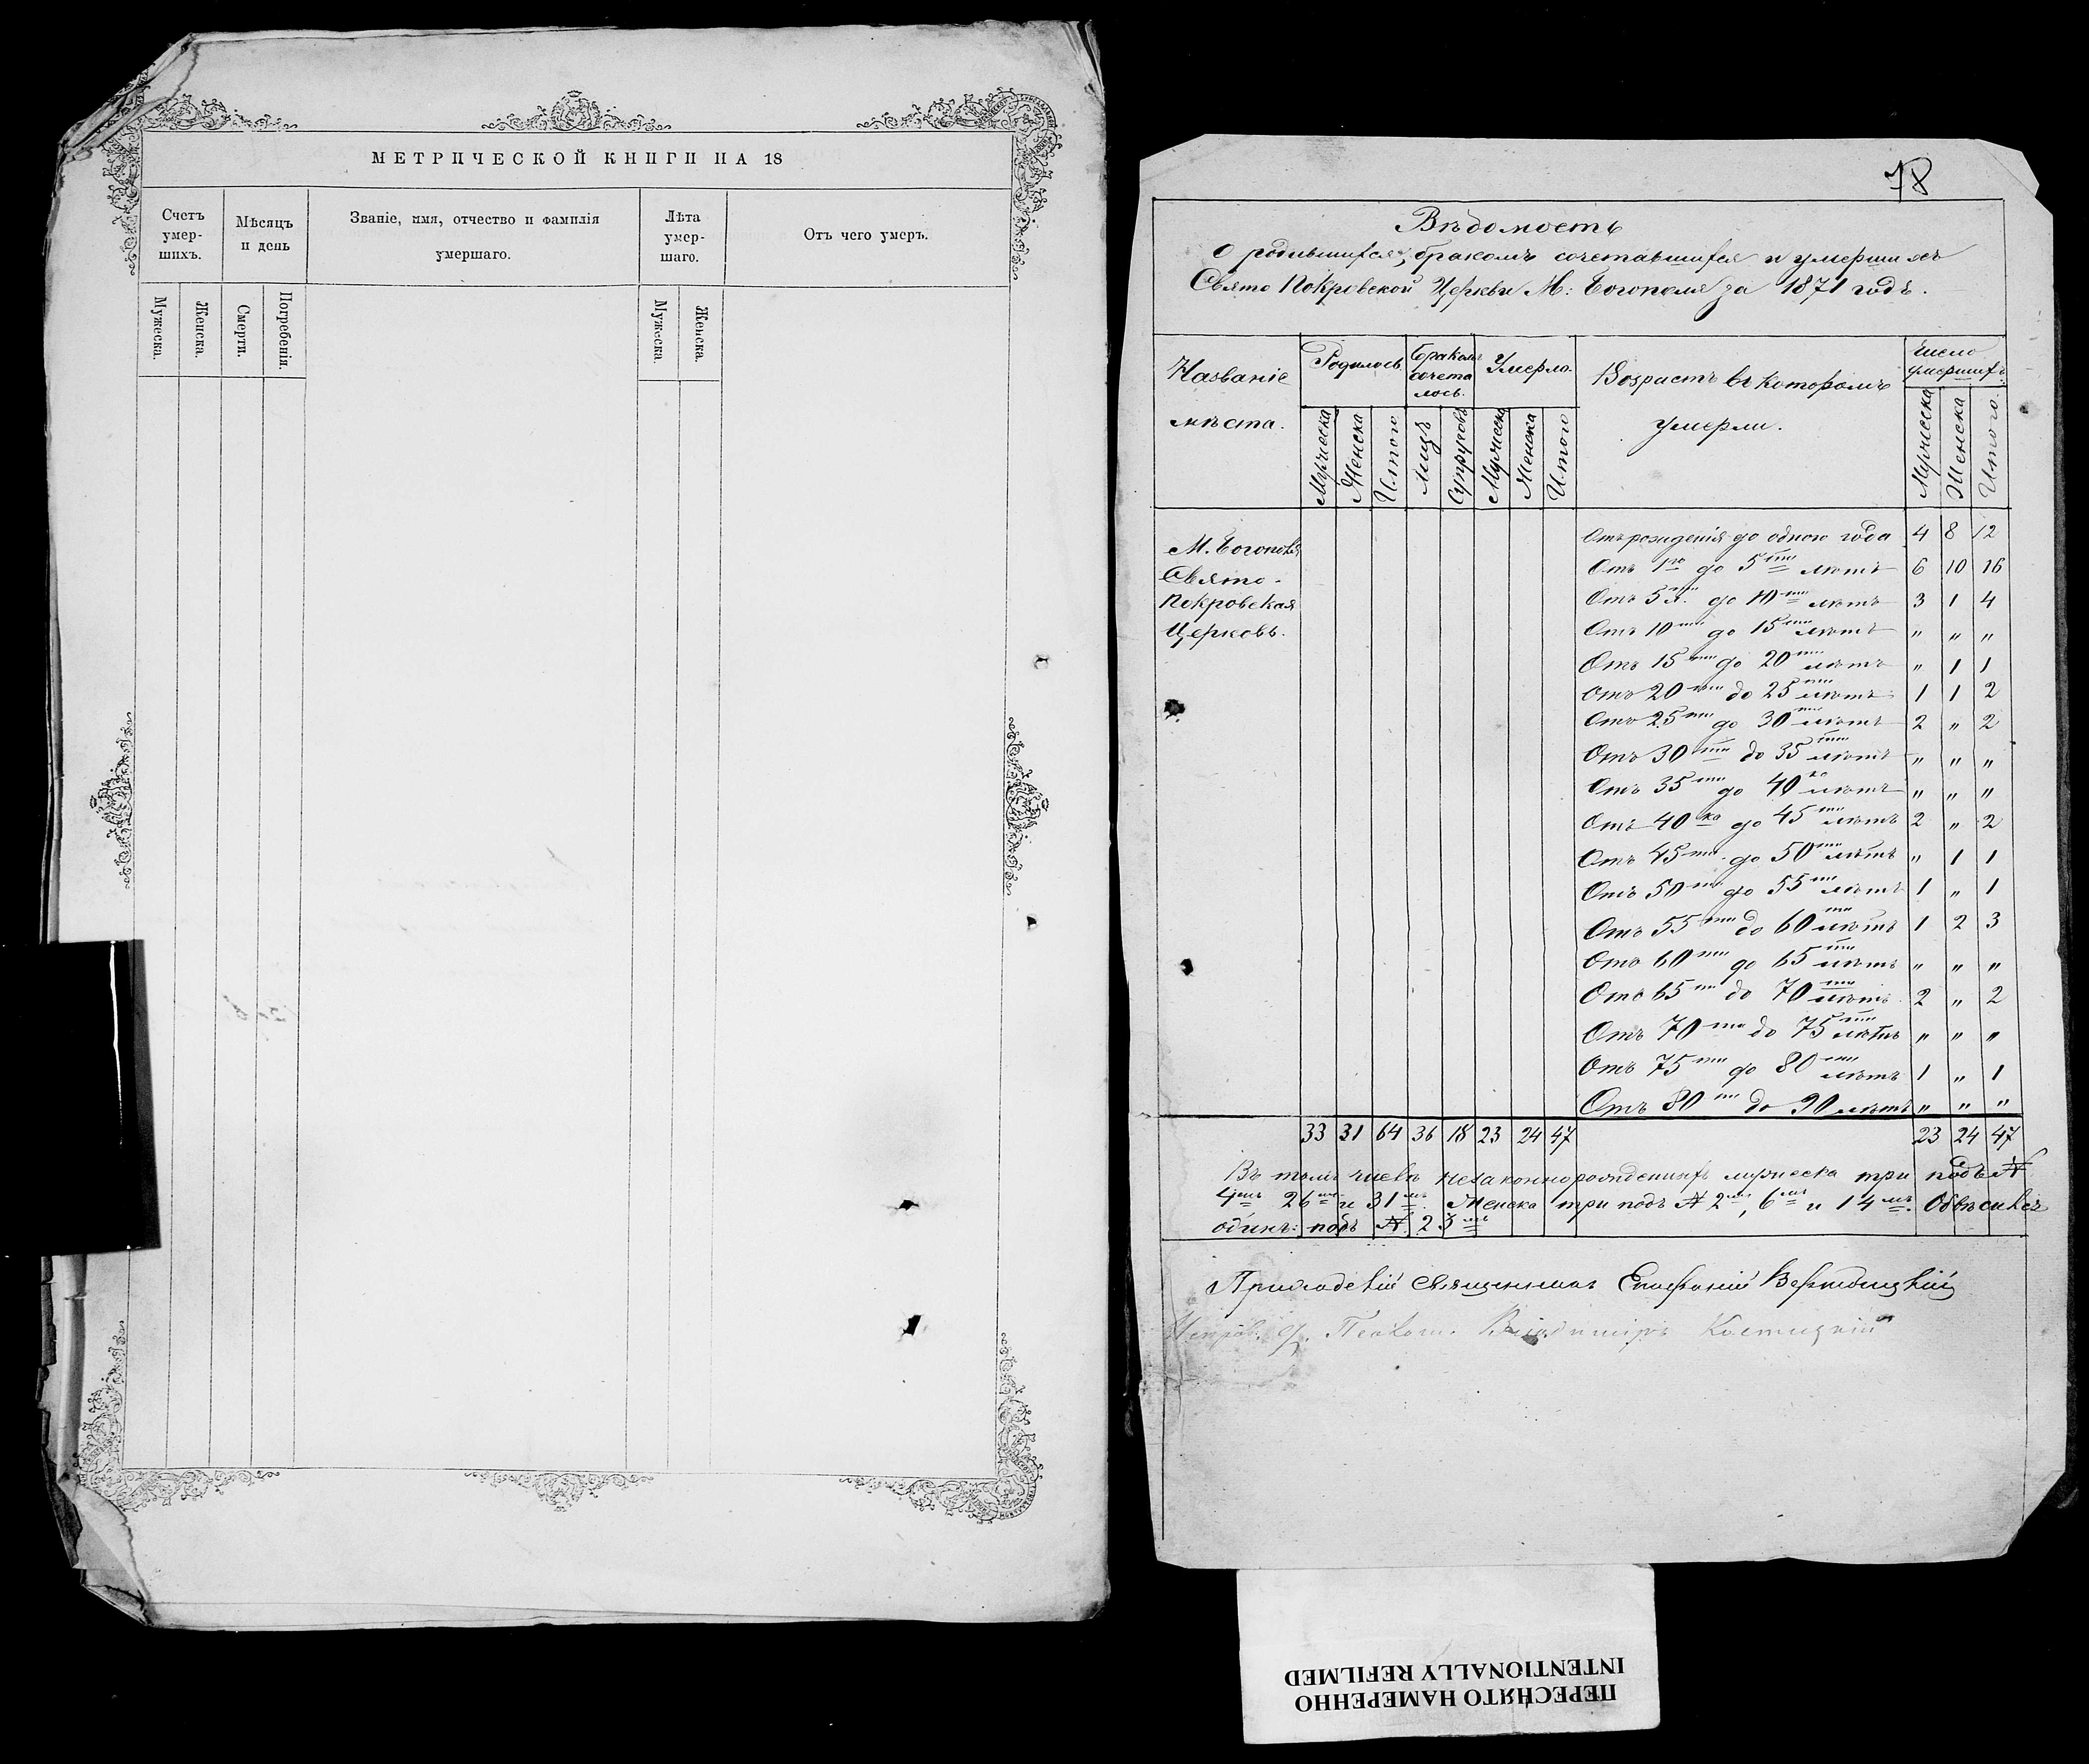 МЕТРИЧЕСКОЙ КНИГИ НА 18
Счетъ умер-шихъ.
Мѣсяцъ и день
Званіе, имя, отчество и фамилія умершаго.
Лѣта умер-шаго.
Отъ чего умеръ.
Мужеска.
Женска.
Смерти.
Погребенія.
Мужеска.
Женска.
78
Вѣдомость
о родившихся, бракомъ сочетавшихся и умершихъ
Свято Покровской Церкви М: Богополя за 1871 годъ.
Названіе мѣста.
Родилось
Бракомъ сочета лось.
Умерло.
Возрастъ въ которомъ умерли.
Число умершихъ.
Мужеска
Женска
Итого
Лицъ
Супруговъ
Мужеска
Женска
Итого
Мужеска
Женска
Итого.
М. Богополя
Свято-
Покровская
Церковь.
Отъ рожденія до одного года 4 8 12
Отъ 1го до 5ти лѣтъ 6 10 16
Отъ 5ти до 10ти лѣтъ 3 1 4
Отъ 10ти до 15ти лѣтъ " " "
Отъ 15ти до 20ти лѣтъ " 1 1
Отъ 20ти до 25ти лѣтъ 1 1 2
Отъ 25ти до 30ти лѣтъ 2 " 2
Отъ 30ти до 35ти лѣтъ " " "
Отъ 35ти до 40ка лѣтъ " " "
Отъ 40ка до 45ти лѣтъ 2 " 2
Отъ 45ти до 50ти лѣтъ " 1 1
Отъ 50ти до 55ти лѣтъ 1 " 1
Отъ 55ти до 60ти лѣтъ 1 2 3
Отъ 60ти до 65ти лѣтъ " " "
Отъ 65ти до 70ти лѣтъ 2 " 2
Отъ 70ти до 75ти лѣтъ " " "
Отъ 75ти до 80ти лѣтъ 1 " 1
Отъ 80ти до 90 лѣтъ " " "
33 31 64 36 18 23 24 47 23 24 47
Въ томъ числѣ незаконнорожденныхъ мужеска три подъ №
4мъ 26мъ и 31мъ. Женска три подъ № 2мъ, 6мъ и 14мъ.
одинъ: подъ №. 23мъ
Приходскій священникъ Епифаній
Владиміръ Костецкій
ПЕРЕСНЯТО НАМЕРЕННО
INTENTIONALLY REFILMED